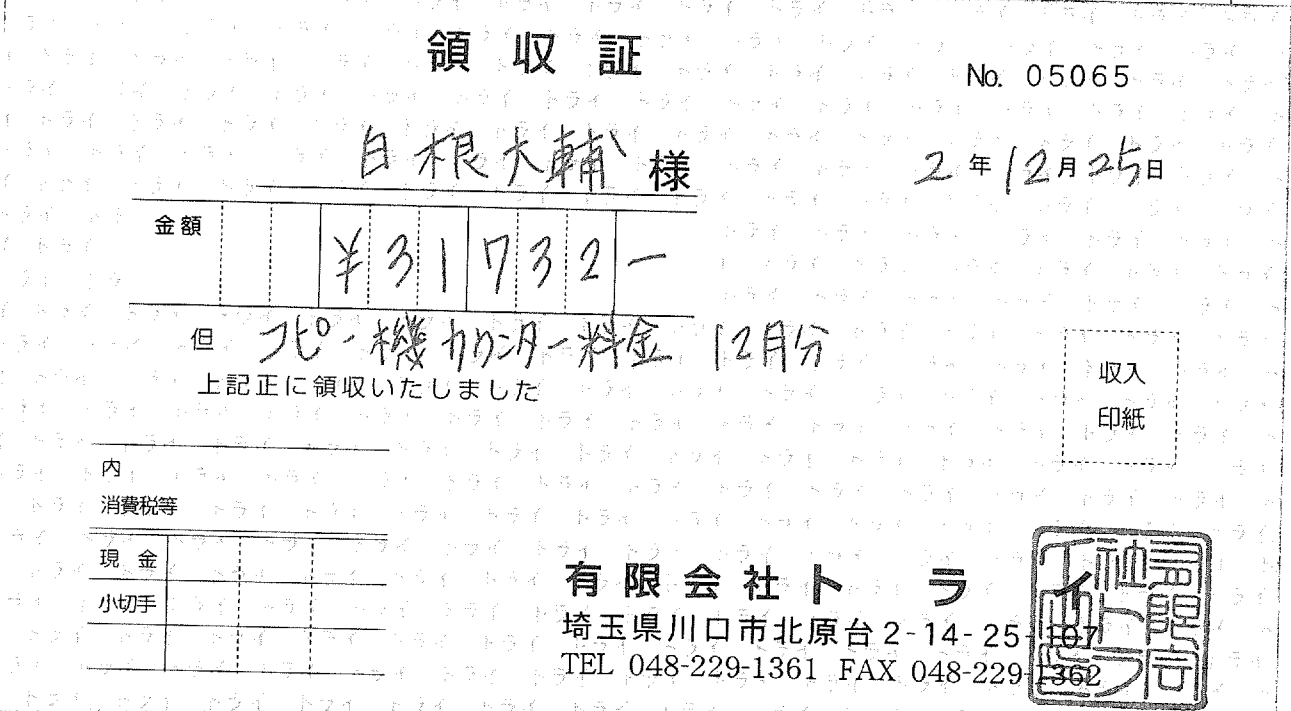 領収証
No. 05065
白根大輔 様
2年12月25日
金額 ¥31732-
但 コピー機カウンター料金 12月分
上記正に領収いたしました
収入
印紙
内
消費税等
現金
小切手
有限会社トライ
埼玉県川口市北原台2-14-25-107
TEL 048-229-1361 FAX 048-229-1362